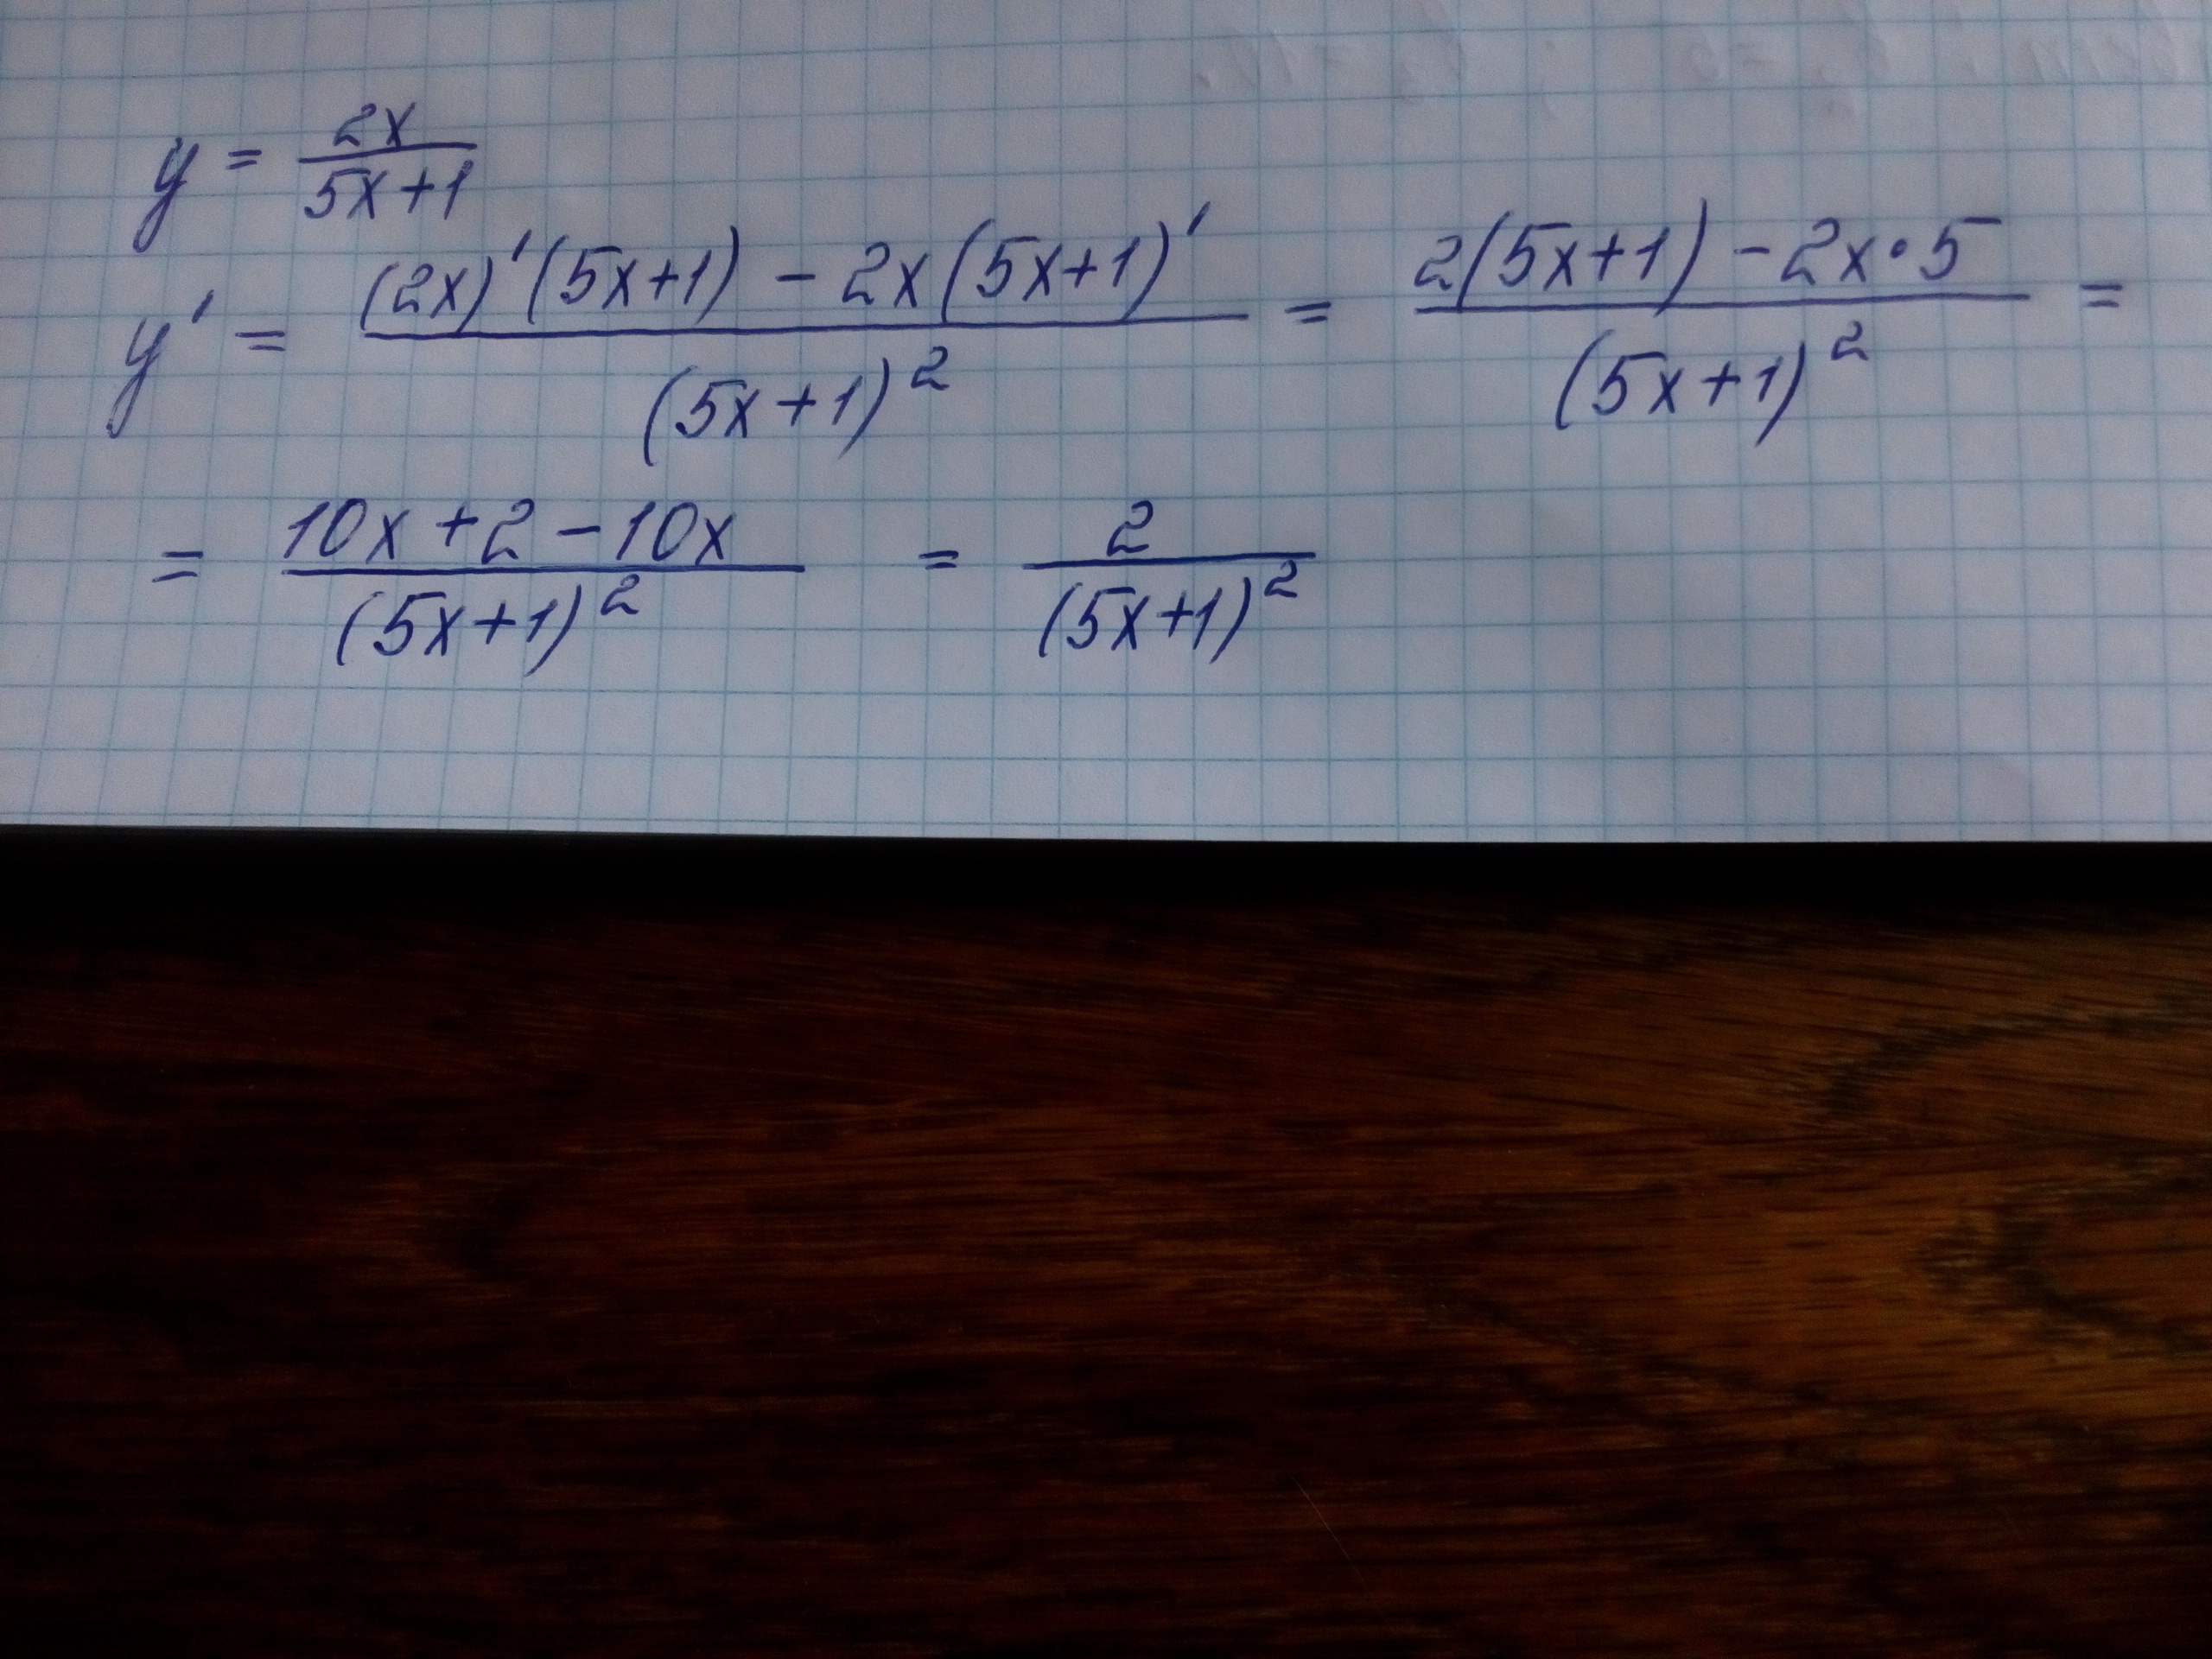 y = 2x / 5x+1
y' = (2x)'(5x+1) - 2x(5x+1)' / (5x+1)² = 2(5x+1) - 2x·5 / (5x+1)² =
= 10x+2-10x / (5x+1)² = 2 / (5x+1)²